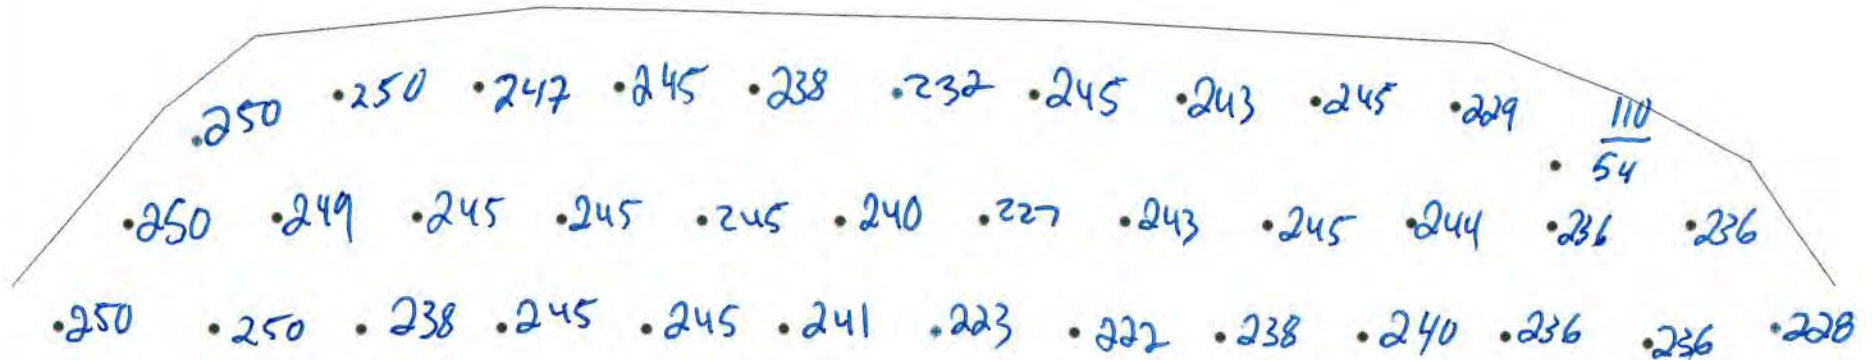 .250 .250 .247 .245 .238 .232 .245 .243 .245 .229 . 110/54
.250 .249 .245 .245 .245 .240 .227 .243 .245 .244 .236 .236
.250 .250 .238 .245 .245 .241 .223 .222 .238 .240 .236 .236 .228